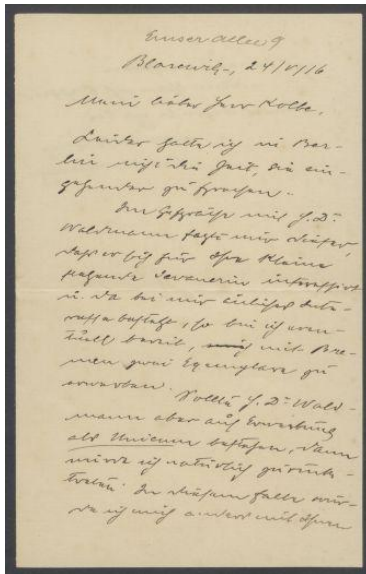 Emser Allee 9
Blasewitz, 24/V/16
Mein lieber Herr Kolbe,
Leider hatte ich in Ber-
lin nicht die Zeit, Sie ein-
gehender zu sprechen.
Im Gespräche mit H. Dr.
Waldmann sagte mir dieser,
dass er sich für Ihre kleine
stehende Javanerin interessiert
u. da bei mir Inte-
resse besteht, so bin ich even-
tuell bereit, mit Bre-
men zwei Exemplare zu
erwerben.
Sollte H. Dr. Wald-
mann aber auf Erwerbung
als Unicum bestehen, dann
würde ich natürlich zurück-
treten. In diesem Falle wür-
de ich mich anders mit Ihnen